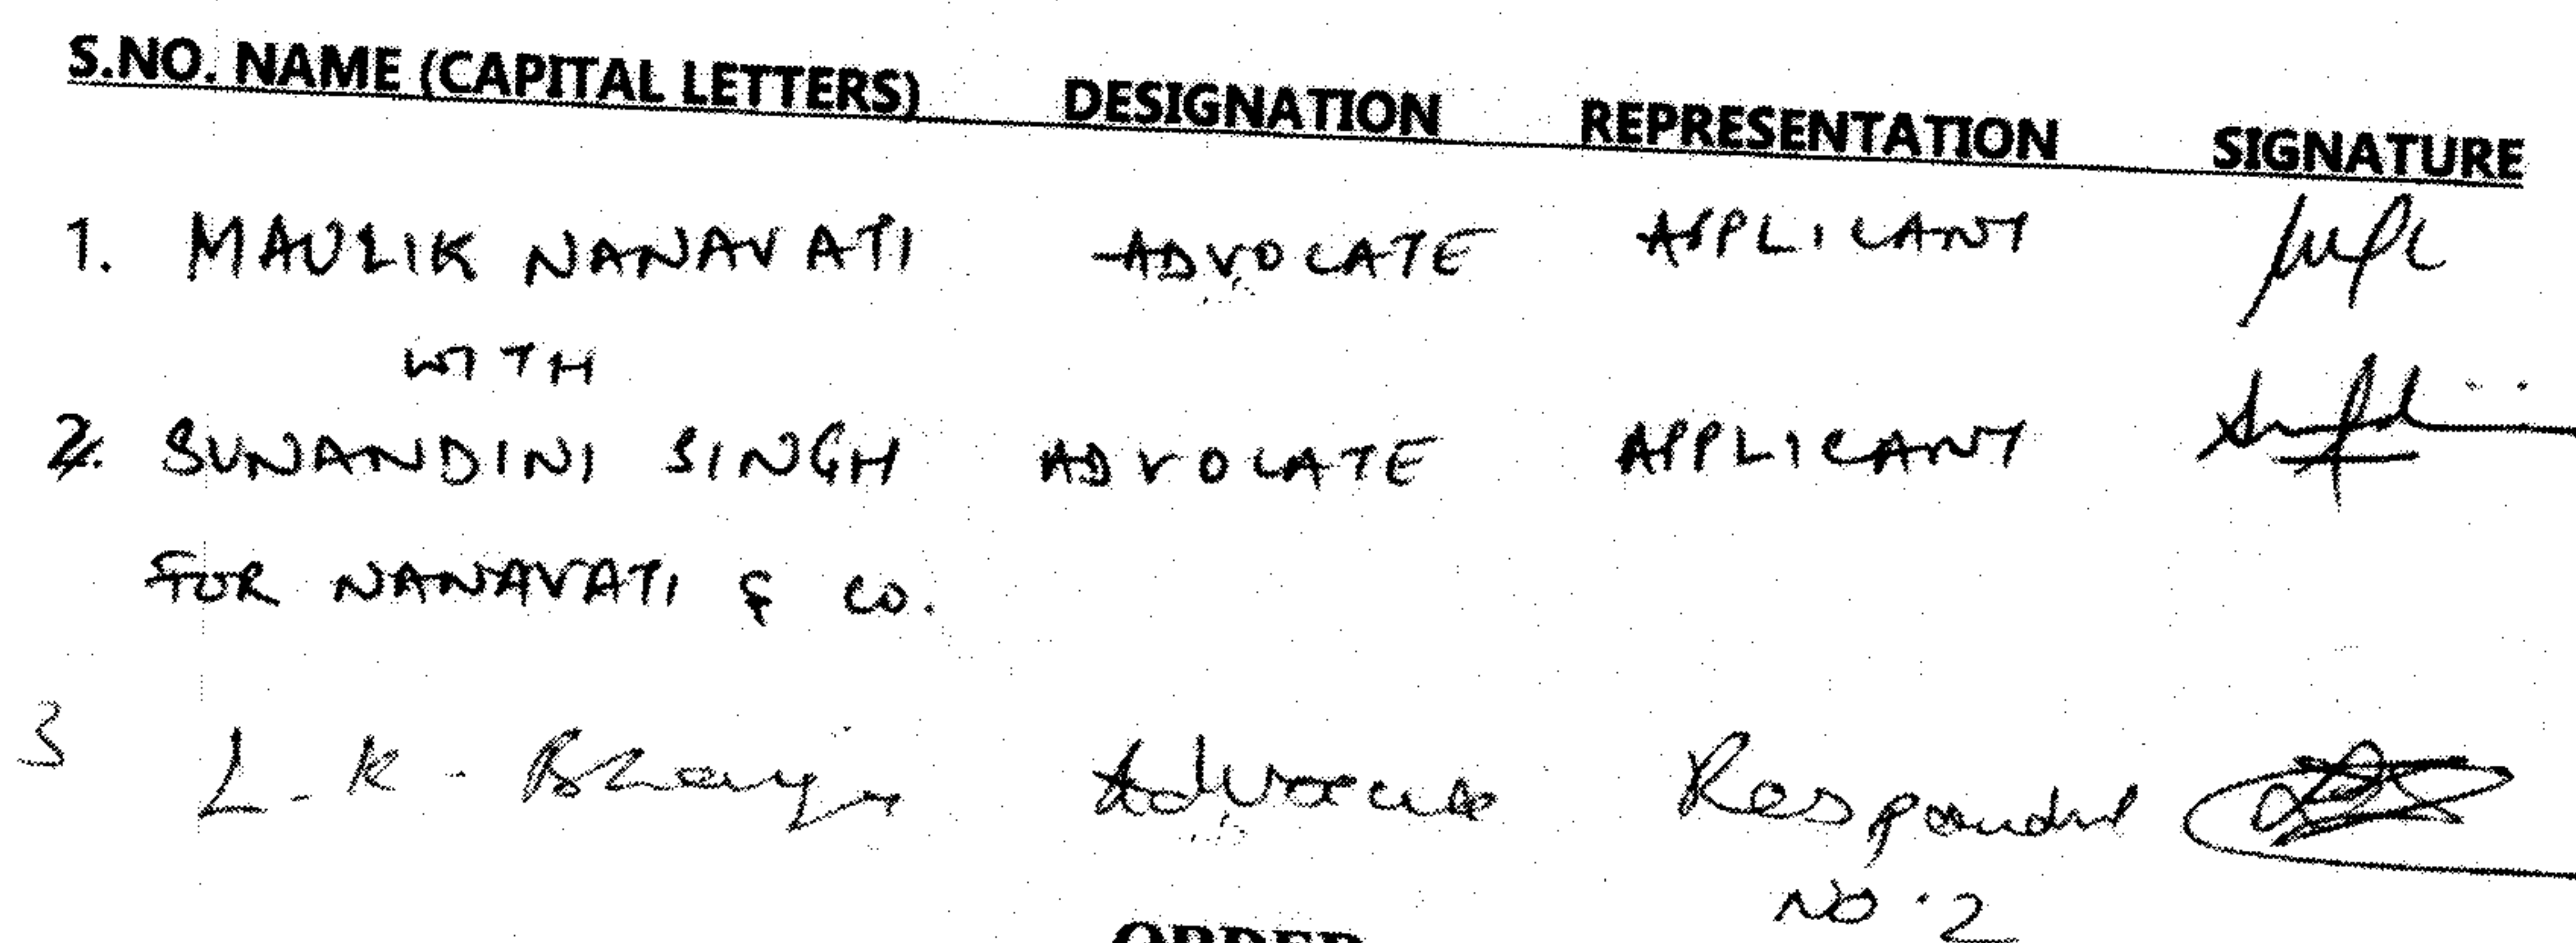 S.NO. NAME (CAPITAL LETTERS) DESIGNATION REPRESENTATION SIGNATURE
1. MAULIK NANAVATI ADVOCATE APPLICANT
WITH
2. SUNANDINI SINGH ADVOCATE APPLICANT
FOR NANAVATI & CO.
3 L. K. Advocate Respondent
NO. 2
ORDER